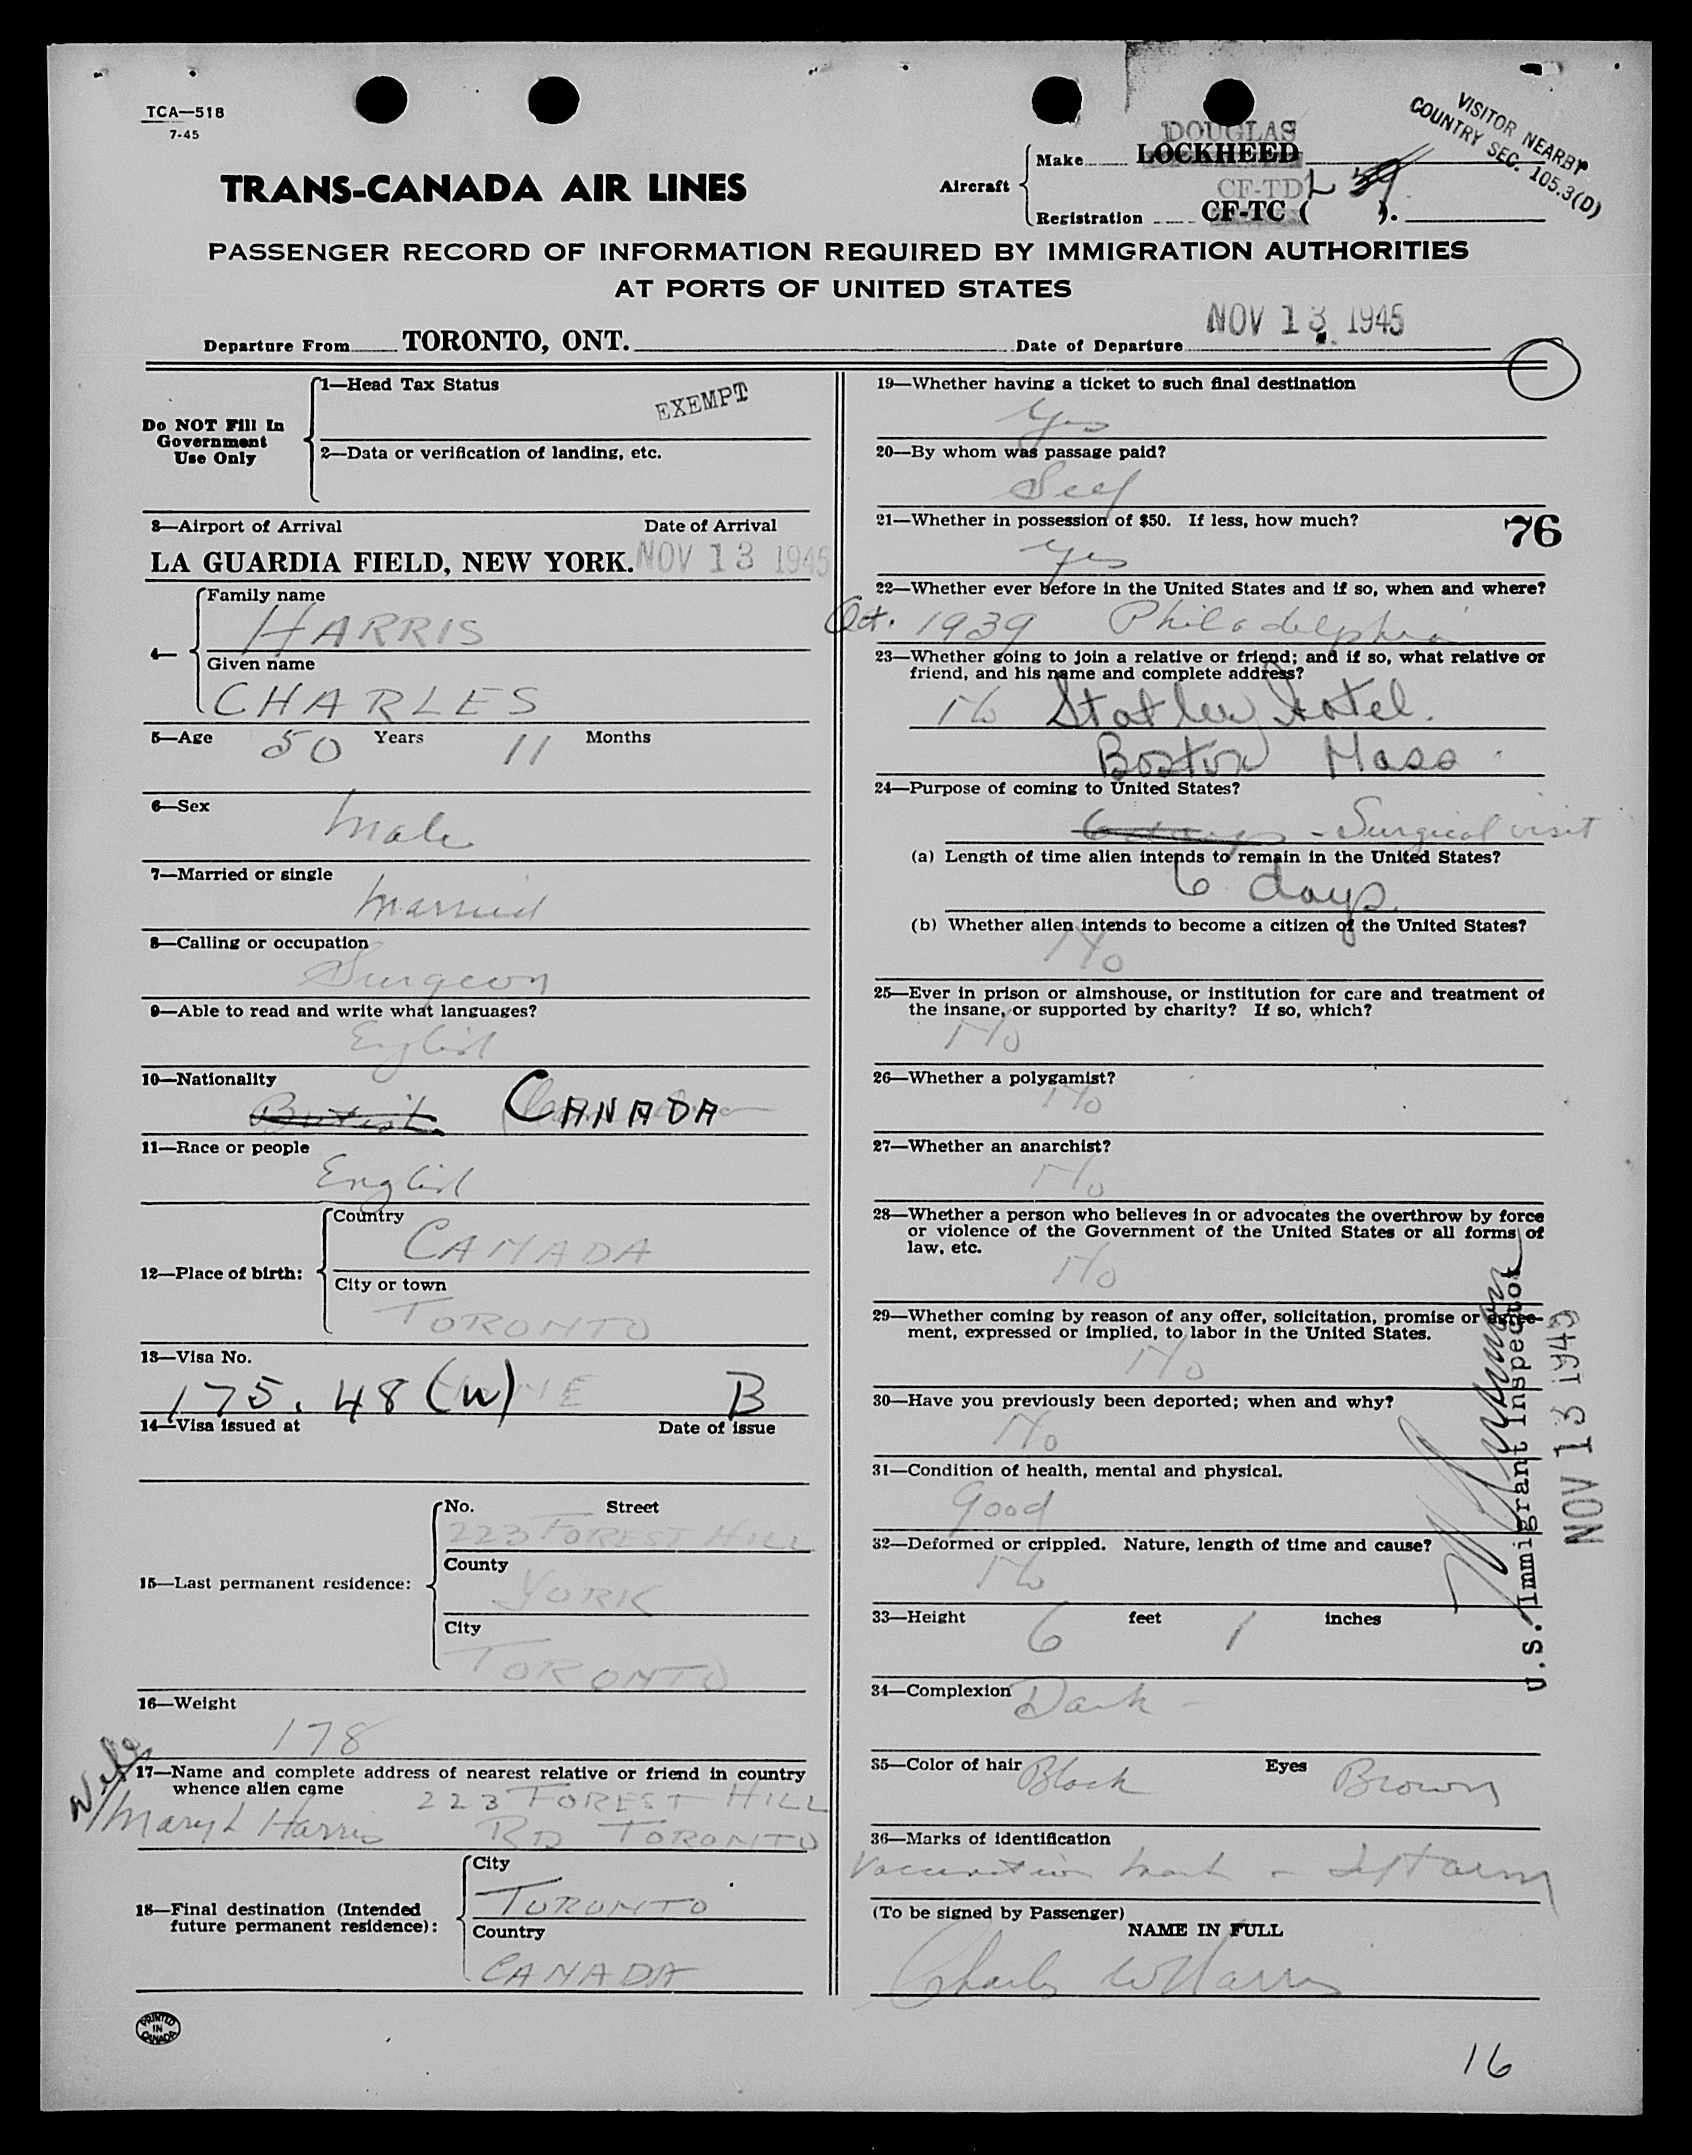 TCA—518
7-45
VISITOR NEARBY
COUNTRY SEC. 105.3(D)
TRANS-CANADA AIR LINES
Aircraft
Make DOUGLAS
LOCKHEED
CF-TDL
Registration CF-TC ( ).
PASSENGER RECORD OF INFORMATION REQUIRED BY IMMIGRATION AUTHORITIES
AT PORTS OF UNITED STATES
Departure From TORONTO, ONT. Date of Departure NOV 13 1945
Do NOT Fill In
Government
Use Only
1—Head Tax Status EXEMPT
2—Data or verification of landing, etc.
3—Airport of Arrival Date of Arrival
LA GUARDIA FIELD, NEW YORK. NOV 13 1945
4— Family name
HARRIS
Given name
CHARLES
5—Age 50 Years 11 Months
6—Sex
Male
7—Married or single
Married
8—Calling or occupation
Surgeon
9—Able to read and write what languages?
English
10—Nationality
British CANADA
11—Race or people
English
12—Place of birth:
Country
CANADA
City or town
TORONTO
13—Visa No.
175.48(W) B
14—Visa issued at Date of issue
15—Last permanent residence:
No. Street
223 FOREST HILL
County
YORK
City
TORONTO
16—Weight
178
Wife
17—Name and complete address of nearest relative or friend in country
whence alien came
Mary L Harris 223 FOREST HILL
RD TORONTO
18—Final destination (Intended
future permanent residence):
City
TORONTO
Country
CANADA
PRINTED
IN
CANADA
19—Whether having a ticket to such final destination
Yes
20—By whom was passage paid?
Self
21—Whether in possession of $50. If less, how much?
76
Yes
22—Whether ever before in the United States and if so, when and where?
Oct. 1939 Philadelphia
23—Whether going to join a relative or friend; and if so, what relative or
friend, and his name and complete address?
No Statler Hotel.
Boston Mass
24—Purpose of coming to United States?
6 days - Surgical visit
(a) Length of time alien intends to remain in the United States?
6 days
(b) Whether alien intends to become a citizen of the United States?
No
25—Ever in prison or almshouse, or institution for care and treatment of
the insane, or supported by charity? If so, which?
No
26—Whether a polygamist?
No
27—Whether an anarchist?
No
28—Whether a person who believes in or advocates the overthrow by force
or violence of the Government of the United States or all forms of
law, etc.
No
29—Whether coming by reason of any offer, solicitation, promise or agree-
ment, expressed or implied, to labor in the United States.
No
30—Have you previously been deported; when and why?
No
31—Condition of health, mental and physical.
Good
32—Deformed or crippled. Nature, length of time and cause?
No
33—Height 6 feet 1 inches
34—Complexion Dark
35—Color of hair Black Eyes Brown
36—Marks of identification
Vaccination mark - Left arm
(To be signed by Passenger)
NAME IN FULL
Charles W Harris
U.S. Immigrant Inspector
NOV 13 1945
16